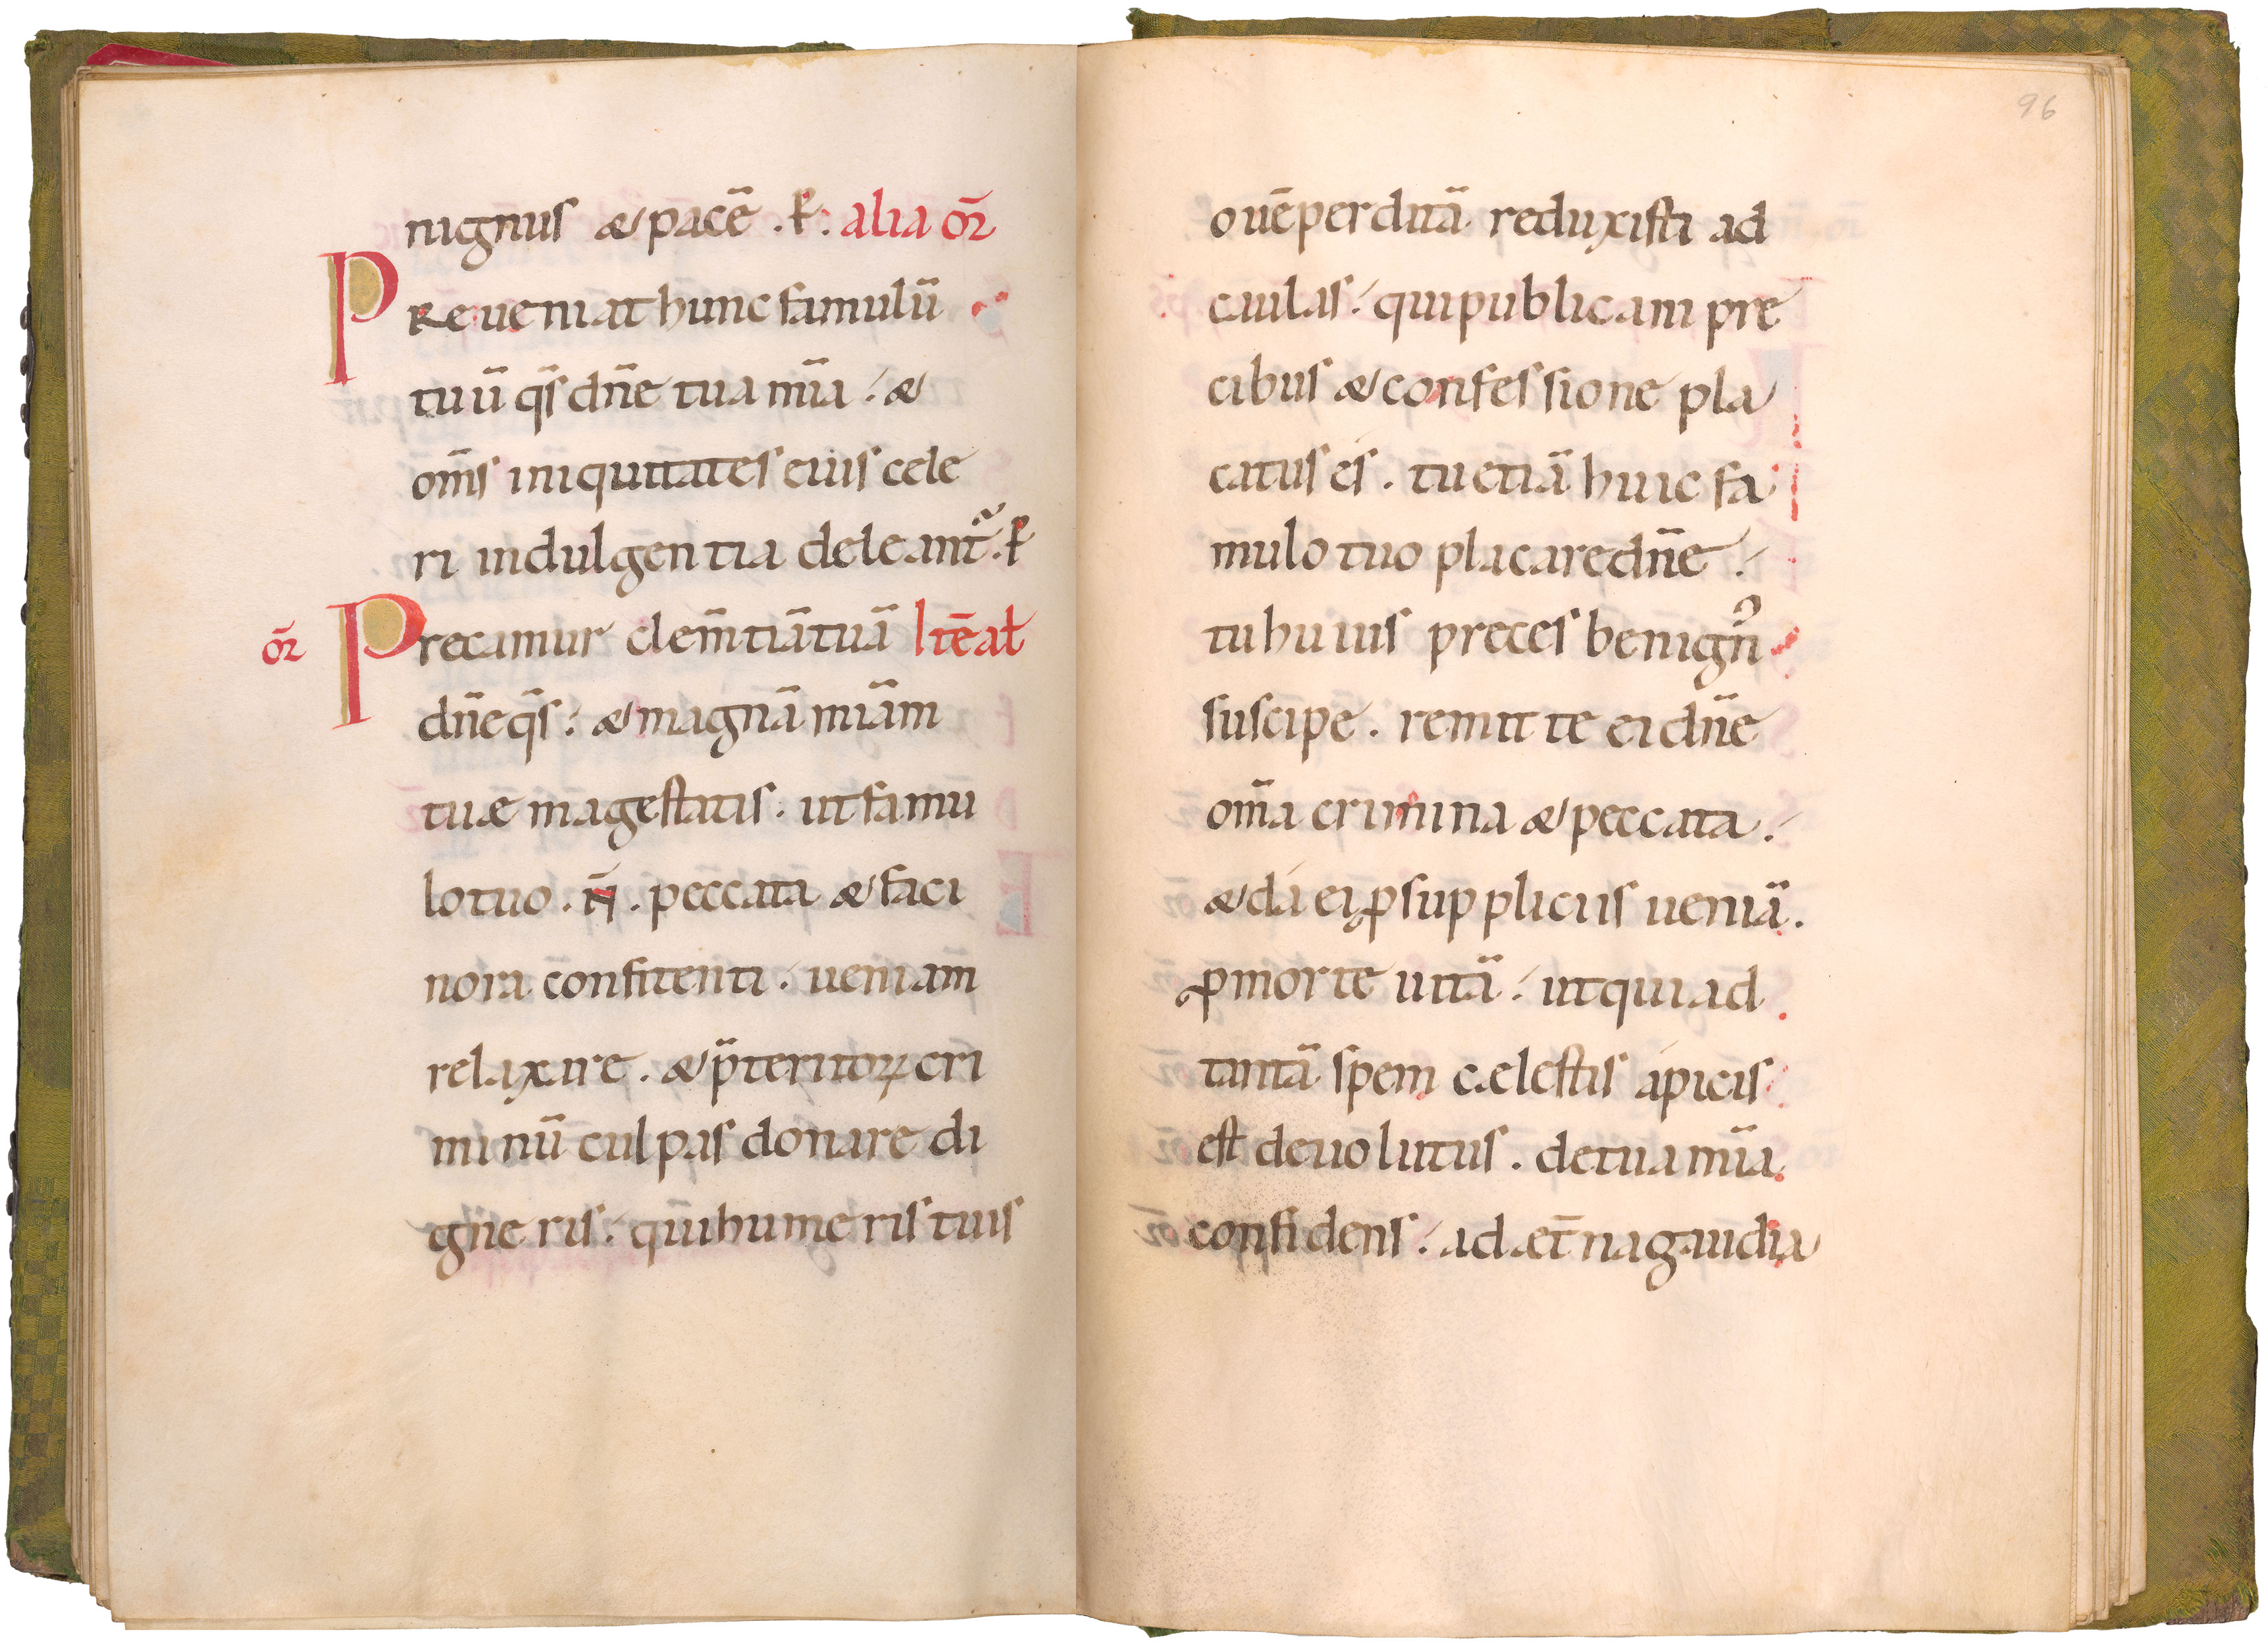 nignus & pacē . ꝶ: alia or̄
PRe ueniat hunc famulū
tuū qs̄ dn̄e tua mīa : &
om̄s iniquitates eius cele
ri indulgentia deleant᷑. ꝶ
or̄ Precamur clem̄tiā tuā ItēaƗ
dn̄e qs̄ : & magnā miām
tuæ magestatis . ut famu
lo tuo . n̄ . peccata & faci
nora confitenti . ueniam
relaxare . & p̄teritoꝝ cri
minū culpas donare di
gne ris : qui humeris tuis
96
ouē perditā reduxisti ad
caulas : qui publicani pre
cibus & confessione pla
catus es . tu etiā huic fa
mulo tuo placare dn̄e :
tu huius preces benignꝰ
suscipe . remitte ei dn̄e
om̄a crimina & peccata :
& da ei ꝓ suppliciis ueniā .
ꝓ morte uitā : ut qui ad
tantā spem celestis apicis
est deuolutus . de tua mīa
confidens : ad æt̄na gaudia